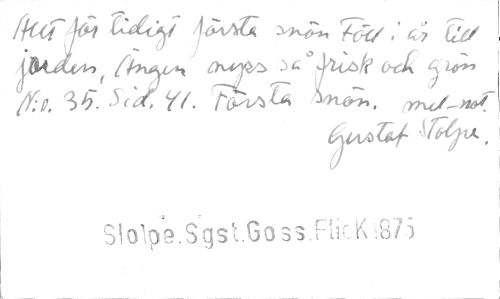 Allt för tidigt första snön Föll i år till
jorden, Ängen nyss så frisk och grön
N:o. 35. Sid. 41. Första snön. mel-not.
Gustaf Stolpe.
Stolpe.Sgst.Goss.Flick 1875